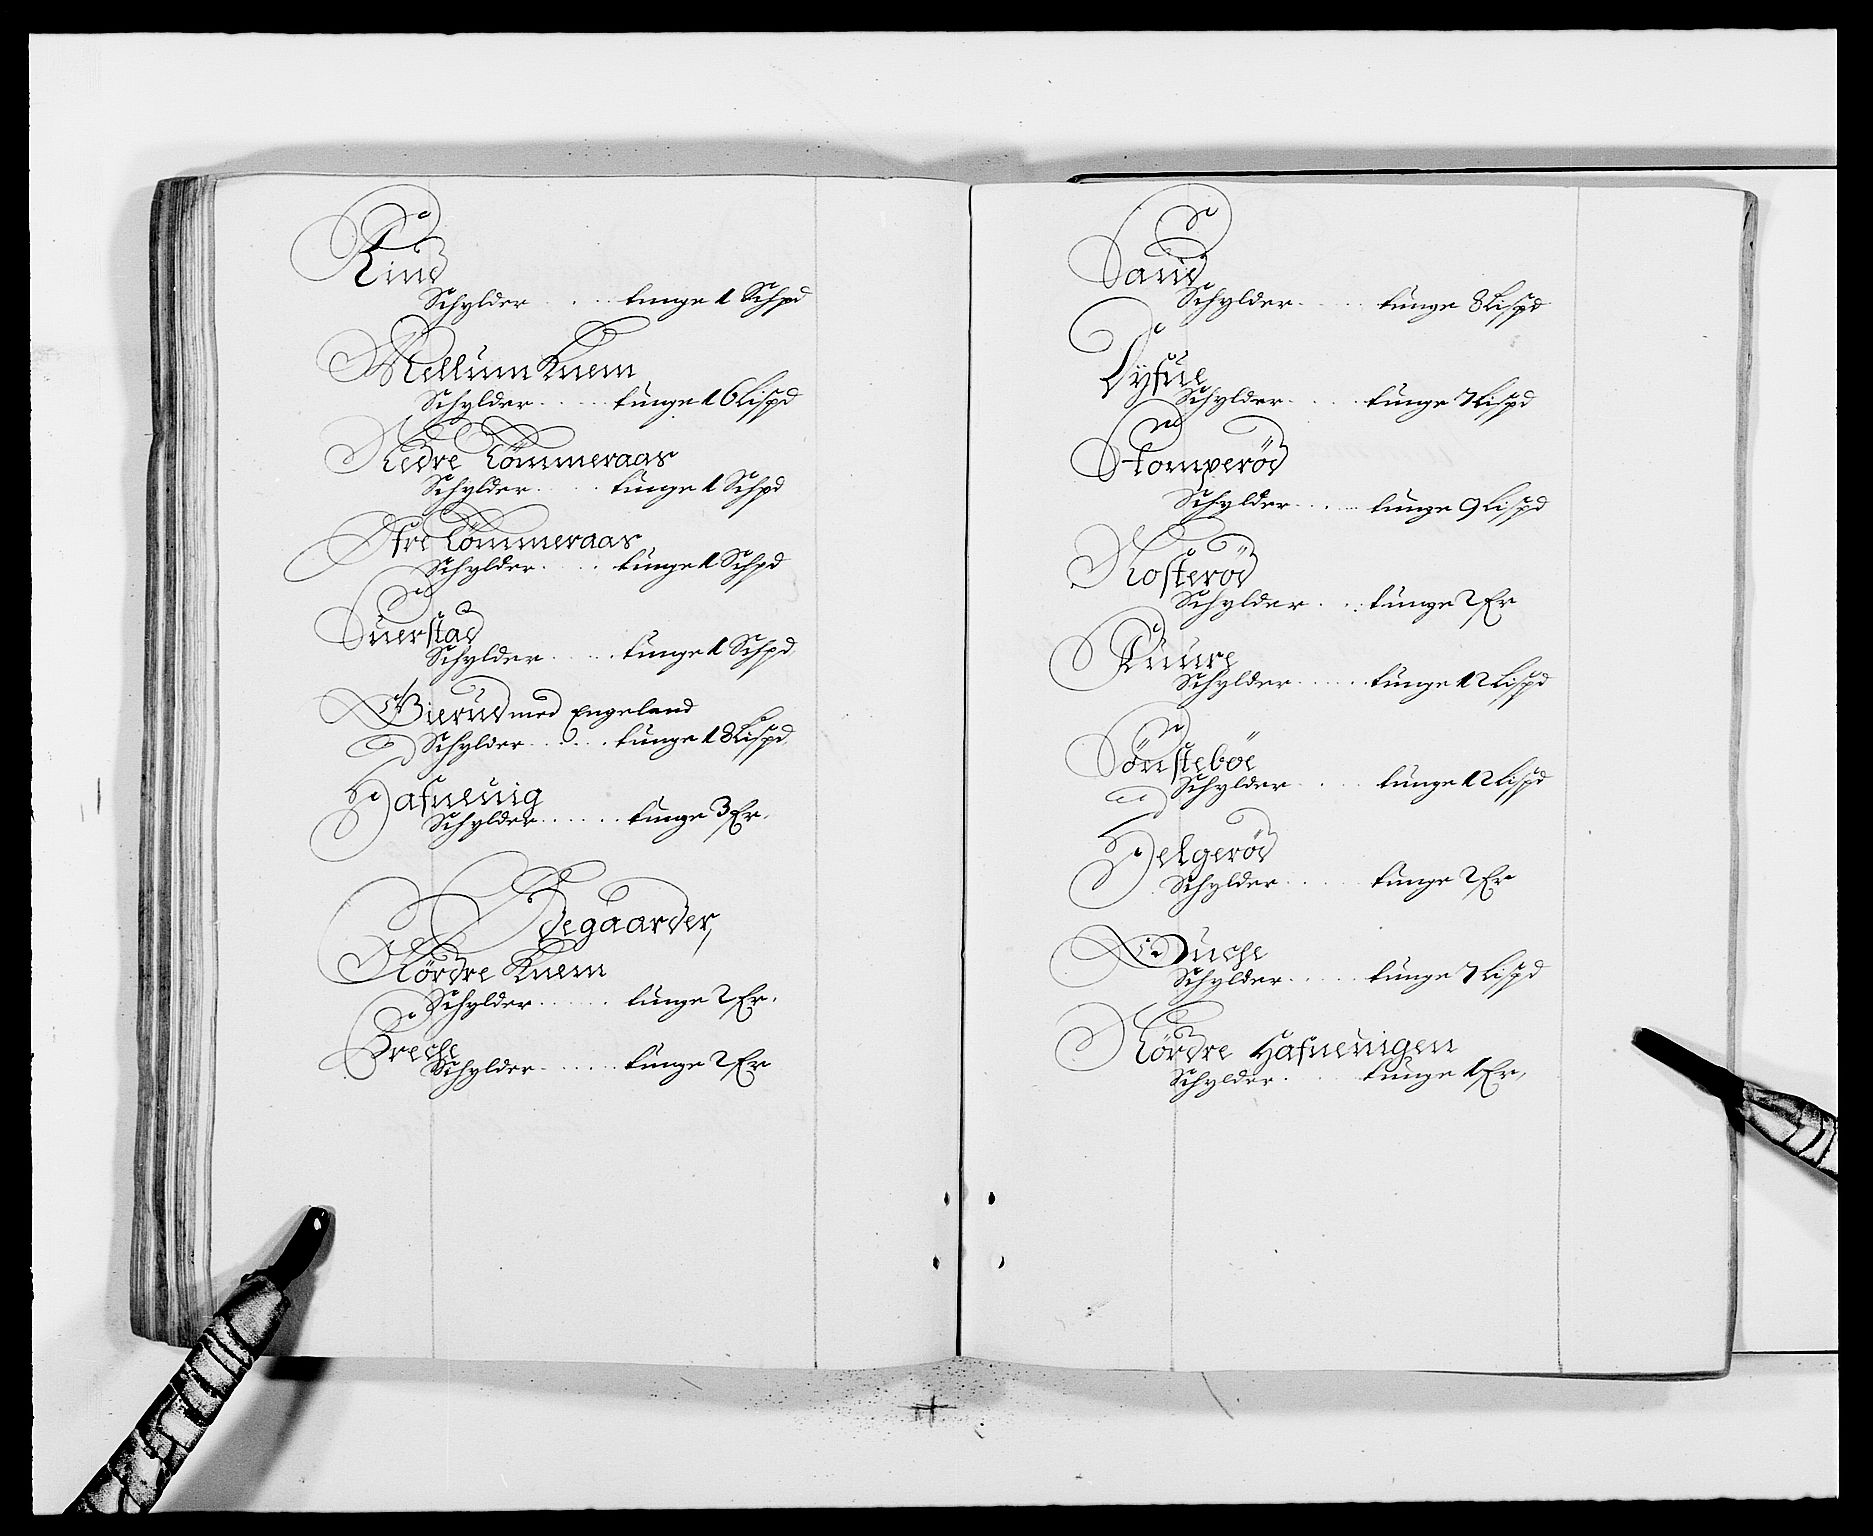 Rind
Schylder . . . . tunge 1 Schpd
Mellum Knem
Schylder . . . . . tunge 16 Lispd
Nedre Tømmeraas
Schylder . . . . tunge 1 Schpd
Øfre Tømmeraas
Schylder . . . . tunge 1 Schpd
Suerstad
Schylder . . . . . tunge 1 Schpd
Bierud med Engeland
Schylder . . . . . tunge 18 Lispd
Hafneuig
Schylder . . . . . . tunge 3 Er.
Ødegaarder,
Nørdre Knem
Schylder . . . . . . tunge 2 Er.
Breche
Schylder . . . . . . tunge 2 Er
Sand
Schylder . . . . . tunge 8 Lispd
Schylder . . . . . tunge 7 Lispd
Stomperød
Schylder . . . . . tunge 9 Lispd
Kosterød
Schylder . . . tunge 2 Er
Schylder . . . . . . tunge 12 Lispd
Sønstebøe
Schylder . . . . tunge 12 Lispd
Helgerød
Schylder . . . . . tunge 2 Er
Schylder . . . . . tunge 7 Lispd
Nørdre Hafneuigen
Schylder . . . . tunge 1 Er,